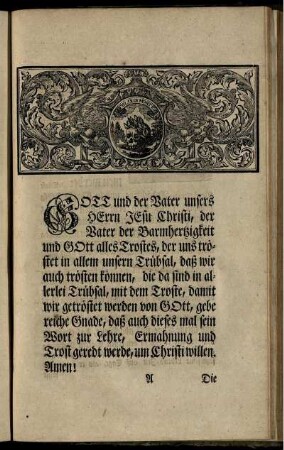 GOTT und der Vater unsers
HErrn JEsu Christi, der
Vater der Barmhertzigkeit
und GOtt alles Trostes, der uns trö-
stet in allem unsern Trübsal, daß wir
auch trösten können, die da sind in al-
lerlei Trübsal, mit dem Troste, damit
wir getröstet werden von GOtt, gebe
reiche Gnade, daß auch dieses mal sein
Wort zur Lehre, Ermahnung und
Trost geredt werde, um Christi willen.
Amen!
A Die